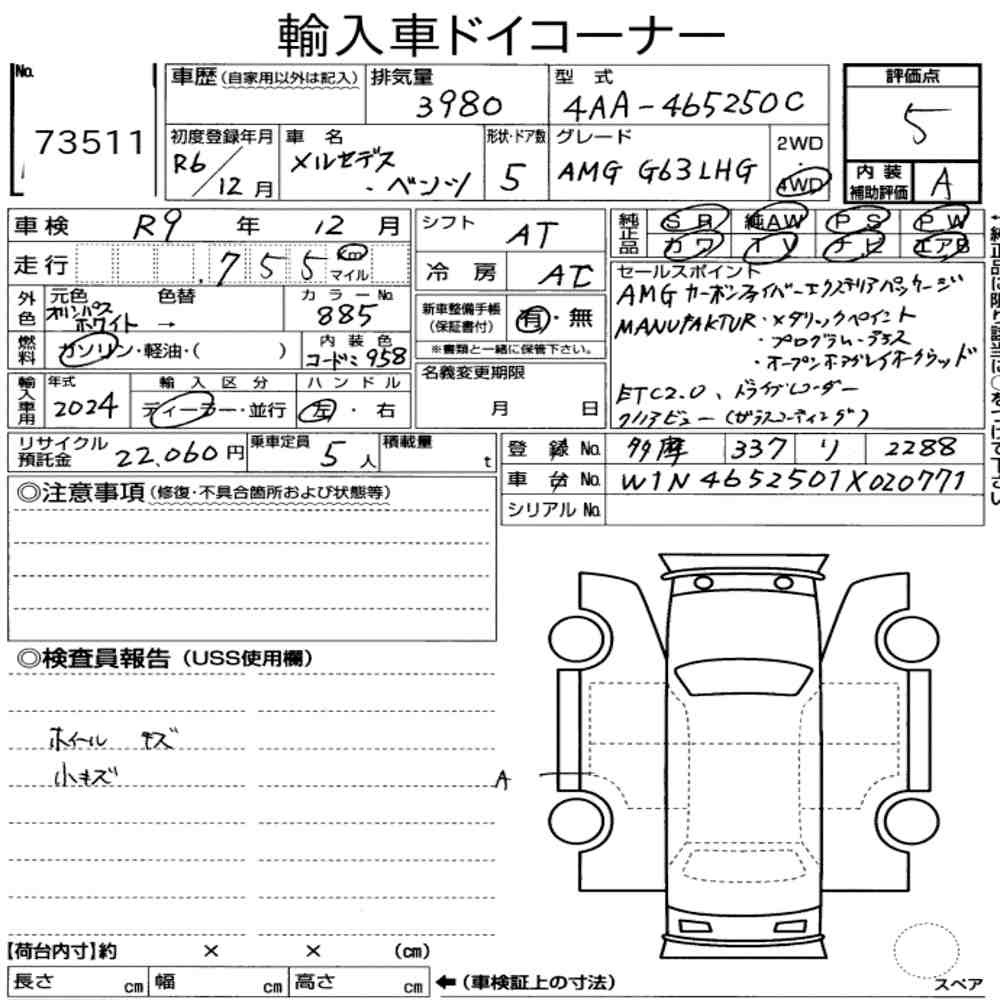 輸入車ドイコーナー
No.
73511
車歴(自家用以外は記入)
排気量
3980
型 式
4AA-465250C
評価点
5
初度登録年月
R6/12月
車 名
メルセデス・ベンツ
形状・ドア数
5
グレード
AMG G63LHG
2WD
・
4WD
内 装
補助評価
A
車検 R9 年 12 月
走行 755 Km マイル
シフト AT
冷 房 AC
純正品
S R 純AW P S P W
カ ワ T V ナ ビ エアB
外色
元色 オリンパスホワイト →
色替
カラーNo.
885
燃料
ガソリン・軽油・( )
内 装 色
コード:958
新車整備手帳
(保証書付)
有・無
※書類と一緒に保管下さい。
セールスポイント
AMGカーボンファイバーエクステリアパッケージ
MANUFAKTUR・メタリックペイント
・プログラム・プラス
・オープンポアグレイオークウッド
ETC2.0、ドライブレコーダー
クリアビュー(ガラスコーティング)
輸入車用
年式
2024
輸 入 区 分
ディーラー・並行
ハ ン ド ル
左・右
名義変更期限
月 日
リサイクル
預託金
22,060円
乗車定員
5人
積載量
t
登 録 No. 多摩 337 り 2288
車 台 No. W1N4652501X020771
シリアル No.
◎注意事項(修復・不具合箇所および状態等)
◎検査員報告(USS使用欄)
ホイール キズ
小キズ
A
【荷台内寸】約 × × (cm)
長さ cm 幅 cm 高さ cm
←(車検証上の寸法)
スペア